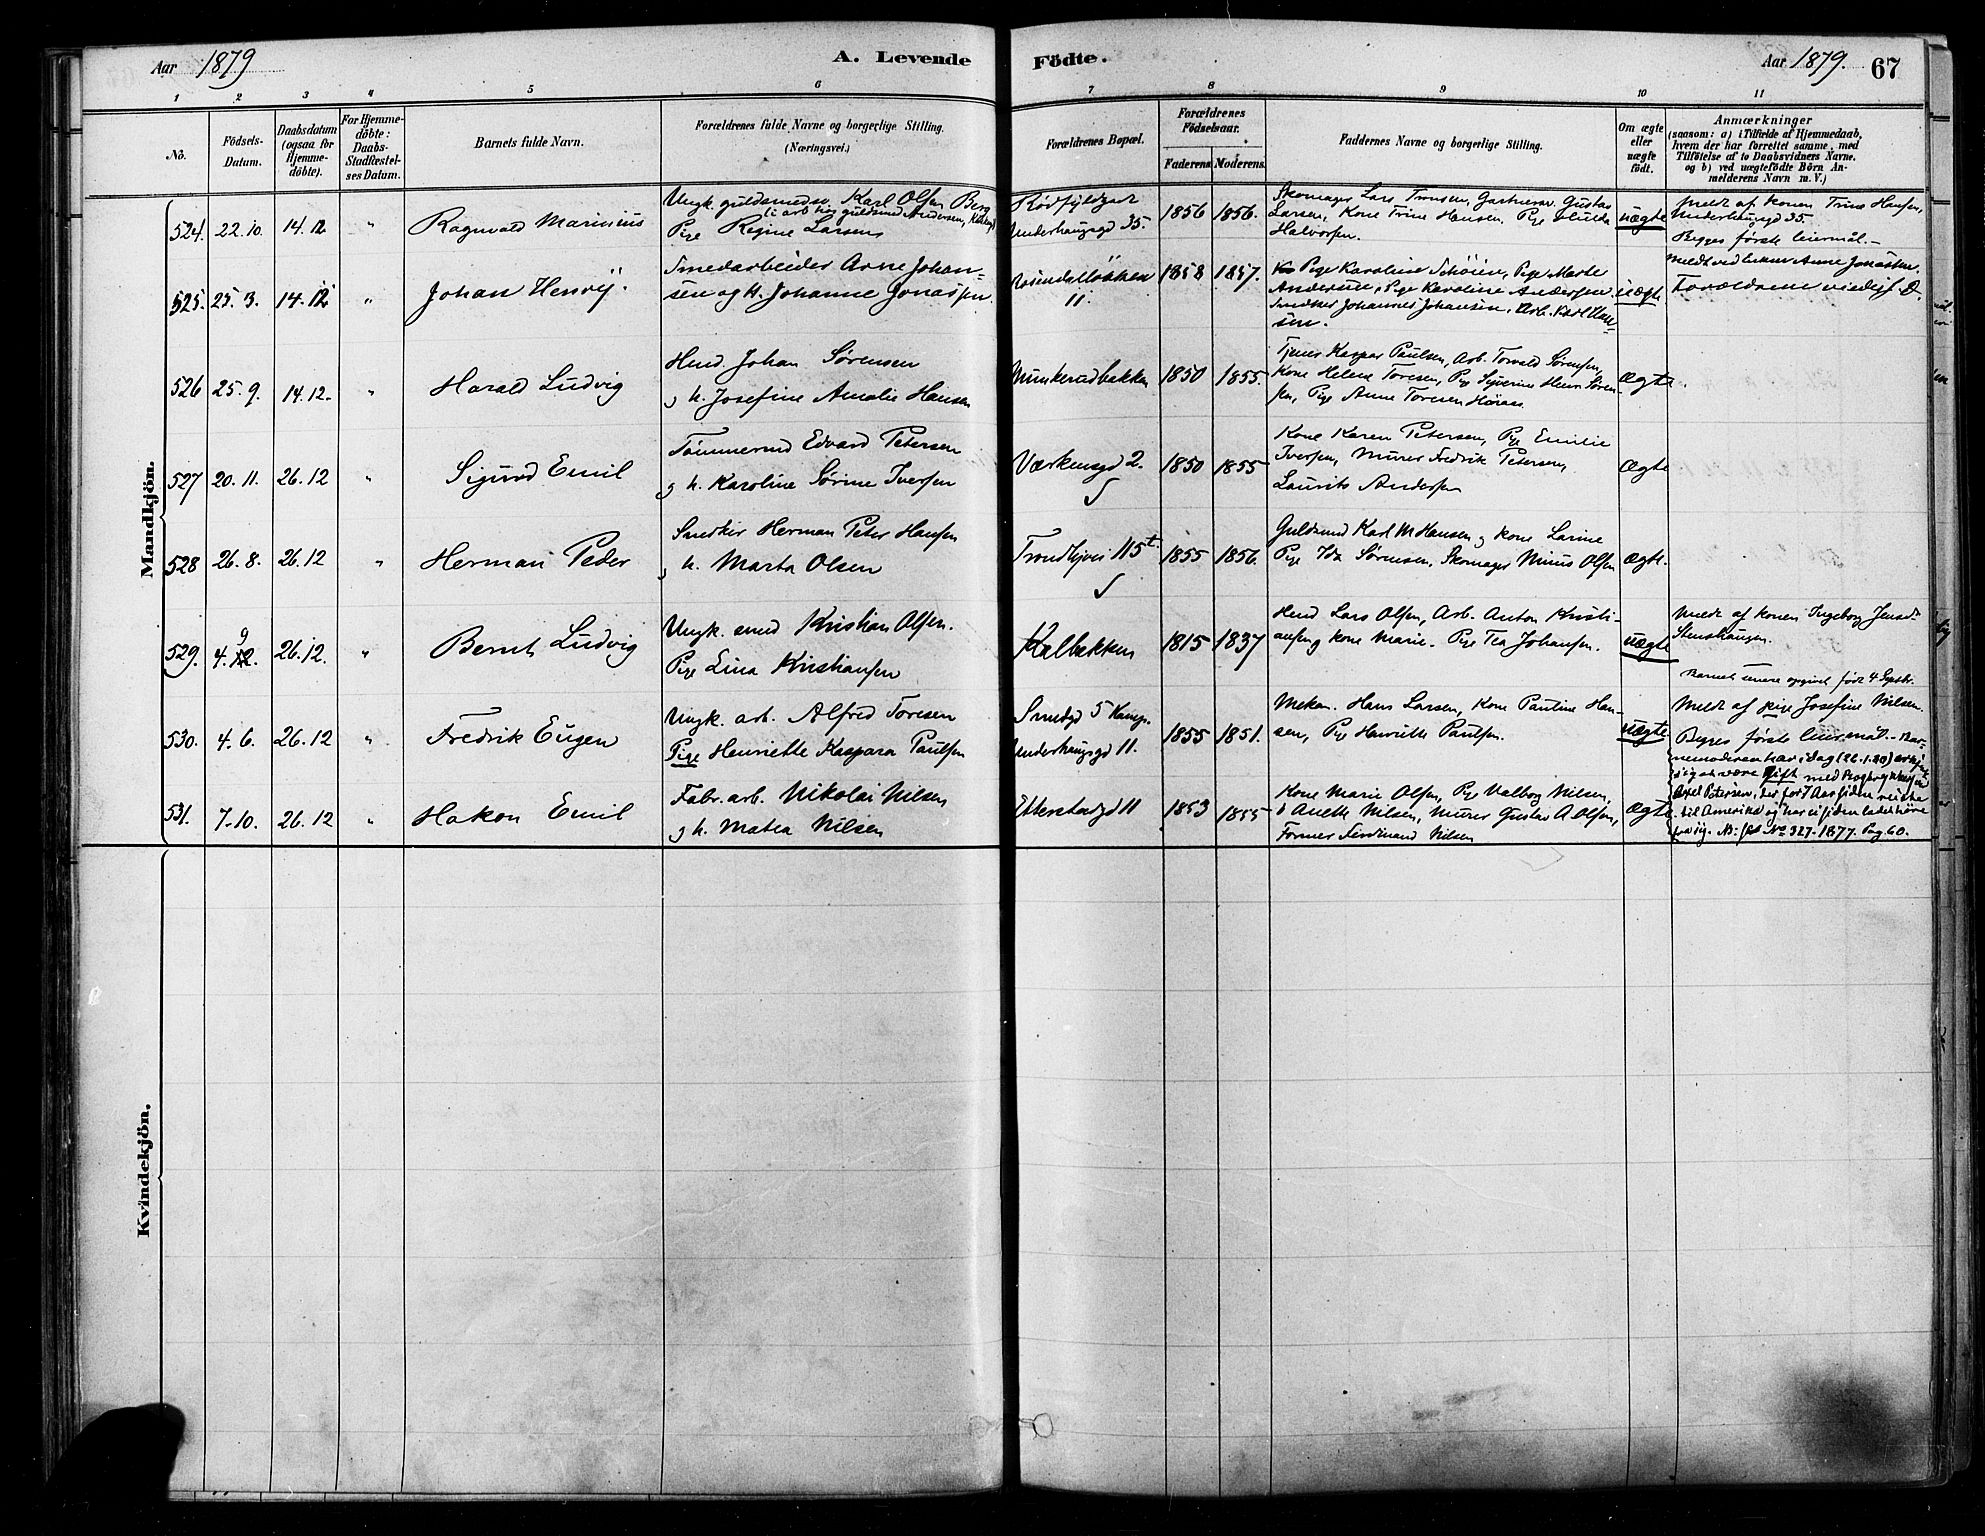 Aar 1879
A. Levende Födte.
Aar 1879. 67
1 2 3 4 5 6 7 8 9 10 11
No.
Födsels-Datum.
Daabsdatum (ogsaa for Hjemme-döbte).
For Hjemme-döbte: Daabs-Stadfæstel-ses Datum.
Barnets fulde Navn.
Forældrenes fulde Navne og borgerlige Stilling. (Næringsvei.)
Forældrenes Bopæl.
Forældrenes Födselsaar.
Faderens Moderens.
Faddernes Navne og borgerlige Stilling.
Om ægte eller uægte födt.
Anmærkninger
(saasom: a) i Tilfælde af Hjemmedaab,
hvem der har forrettet samme, med
Tilföielse af to Daabsvidners Navne,
og b) ved uægtefödte Börn An-
melderens Navn m. V.)
Mandkjön.
524. 22.10. 14.12 " Ragnvald Marinius
Ungk. guldsmedsv. Karl Olsen Berg
(i arb hos guldsmd Andersen,
Pige Regine Larsen
Underhaugsgd 35.
1856 1856.
Skomager Lars Tronsen, Gartnersv. Gustav
Larsen, Kone Trine Hansen, Pige Hulda
Halvorsen.
uægte
Meldt af konen Trine Hansen,
Underhaugsgd 35.
Begges første leiermål.-
525. 25.3. 14.12 " Johan Henrij.
Smedarbeider Arne Johan-
sen og h. Johanne Jonassen.
11.
1858 1857.
Pige Karoline Schöien, Pige Marte
Andersen, Pige Karoline Andersen.
Snedker Johannes Johansen, Arb. Karl Han-
sen.
uægte
Meldt ved Anne Jonassen.
Forældrene
526 25.9. 14.12. " Harald Ludvig
Hmd. Johan Sørensen
og h. Josefine Amalie Hansen
Munkerudbakken
1850 1855.
Tjener Kaspar Paulsen, Arb. Torvald Sørensen,
Kone Helene Toresen, Pge Søren-
sen, Pige Anne Toresen
Ægte.
527 20.11. 26.12 " Sigurd Emil
Tømmermd Edvard Petersen
og h. Karoline Sørine Iversen
Værkensgd 2.
1850 1855
Kone Karen Petersen, Pge Emilie
Iversen, Murer Fredrik Petersen,
Laurits Andersen
Ægte
528 26.8. 26.12 " Herman Peder
Snedker Herman Peter Hansen
og h. Marta Olsen
Trondhjvei 115
1855 1856.
Guldsmd Karl M Hansen og kone Larine
Pige Ida Sørensen, Skomager Minus Olsen
Ægte.
529. 4.12. 9 26.12. " Bernt Ludvig
Ungk. smed Kristian Olsen.
Pige Lina Kristiansen
Kalbakken
1815 1837
Hmd Lars Olsen, Arb. Anton Kristi-
ansen og kone Marie. Pige Tea Johansen.
uægte
Meldt af konen Ingeborg Jensd.
Stenshaugen.
Barnet senere opgivet født 4 Septbr.
530. 4.6. 26.12 " Fredrik Eugen
Ungk. arb. Alfred Toresen
Pige Henriette Kaspara Paulsen
Smedgd 5 Kamp.
Underhaugsgd 11.
1855 1851.
Mekan. Hans Larsen, Kone Pauline Han-
sen, Pge Henriette Paulsen.
uægte.
Meldt af pige Josefine Nilsen.
Begges første leiermål.- Bar-
nemoderen har i dag (26.1.80) erkjendt
sig at være gift med
Axel Petersen, der for 7 Aar siden reiste
til Amerika og har ei siden ladet høre
fra sig. No 327. 1877. Pag. 60.
531. 7.10. 26.12 " Hakon Emil
Fabr. arb. Nikolai Nilsen
og h. Matea Nilsen
Etterstadgd 11
1853 1855
Kone Marie Olsen, Pge Valborg Nilsen,
Anette Nilsen, Murer Gustav A Olsen,
Former Ferdinand Nilsen
Ægte
Kvindekjön.